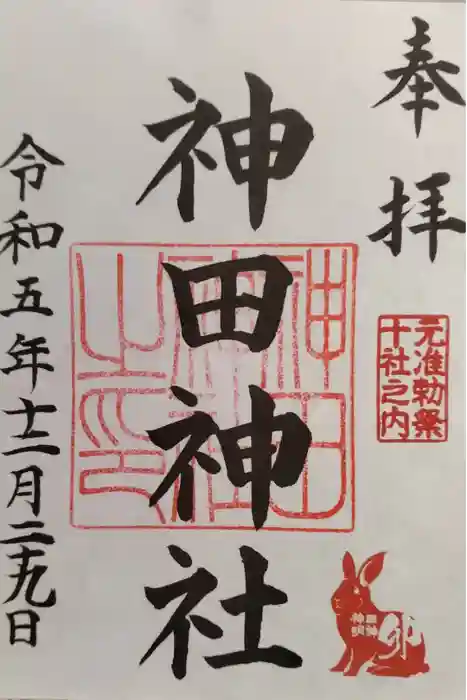 奉拝
元准勅祭
十社之内
卯
神田神社
神田神社之印
令和五年十二月二十九日